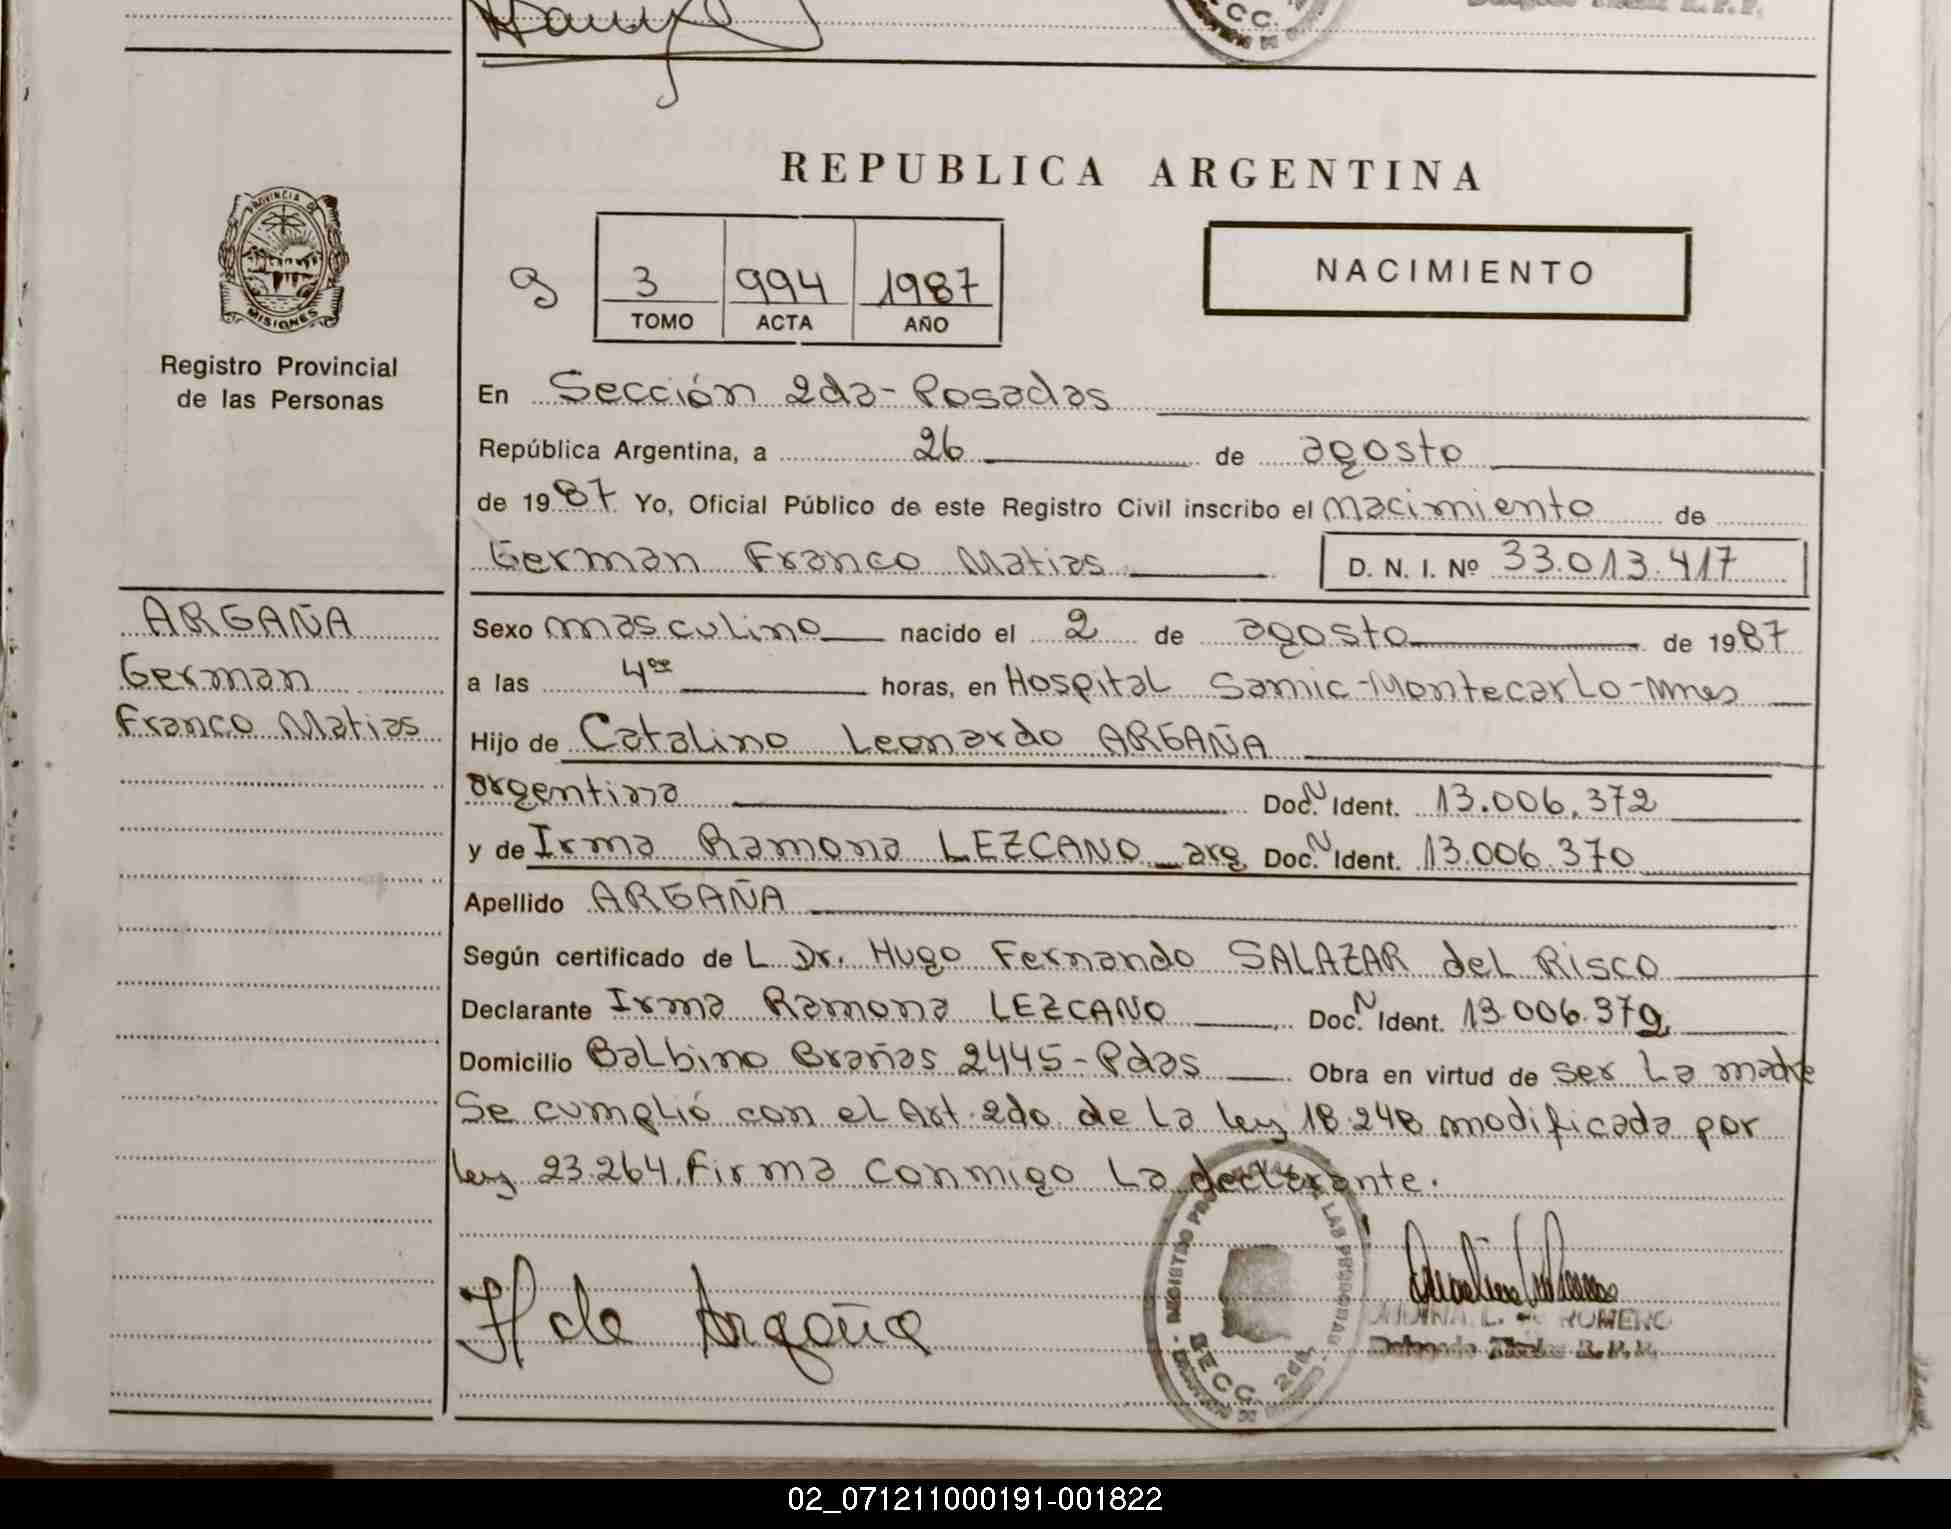 PROVINCIA DE
MISIONES
Registro Provincial
de las Personas
ARGAÑA
German
Franco Matias
REPUBLICA ARGENTINA
3 994 1987
TOMO ACTA AÑO
NACIMIENTO
En Sección 2da - Posadas
República Argentina, a 26 de agosto
de 1987 Yo, Oficial Público de este Registro Civil inscribo el nacimiento de
German Franco Matias D. N. I. Nº 33.013.417
Sexo masculino nacido el 2 de agosto de 1987
a las 4 horas, en Hospital Samic - Montecarlo - Mnes
Hijo de Catalino Leonardo ARGAÑA
argentina Doc. N Ident. 13.006.372
y de Irma Ramona LEZCANO arg. Doc. N Ident. 13.006.370
Apellido ARGAÑA
Según certificado de L Dr. Hugo Fernando SALAZAR del Risco
Declarante Irma Ramona LEZCANO Doc. N Ident. 13.006.370
Domicilio Balbino Brañas 2445 - Pdas Obra en virtud de ser La madre
Se cumplió con el Art. 2do de La ley 18.248 modificada por
ley 23.264. Firma conmigo La declarante.
de Argaña
SECC. 2da.
L. de ROMERO
Delegada Titular R.P.P.
02_071211000191-001822